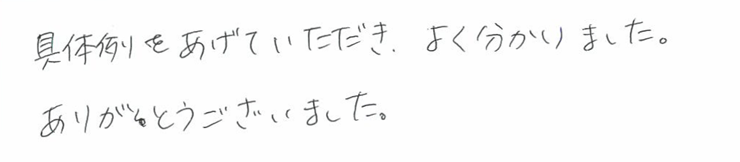 具体例をあげていただき、よく分かりました。
ありがとうございました。